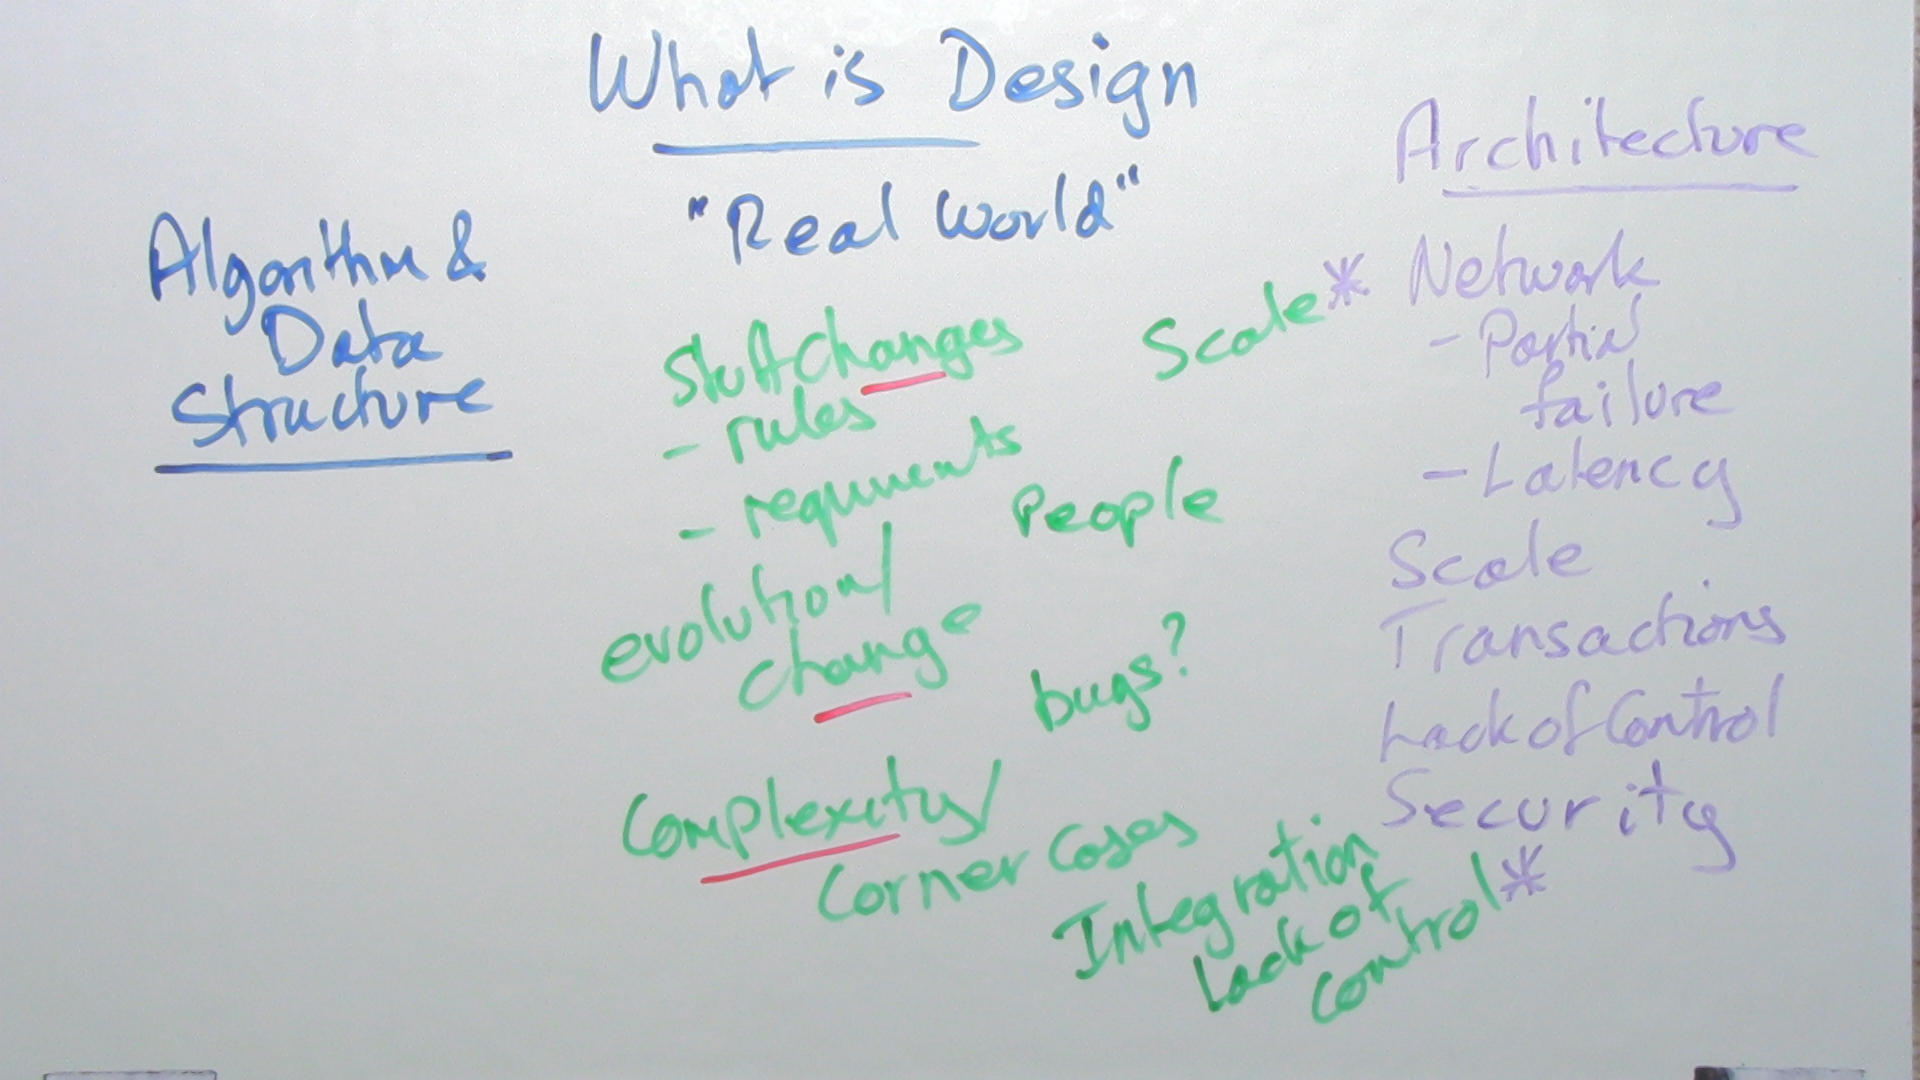 What is Design
"Real World"
Algorithm &
Data
Structure
Stuff Changes
- rules
- requirments
evolution/
change
Complexity/
Corner Cases
Scale*
People
bugs?
Integration
Lack of
control*
Architecture
Network
- Partial
failure
- Latency
Scale
Transactions
Lack of Control
Security